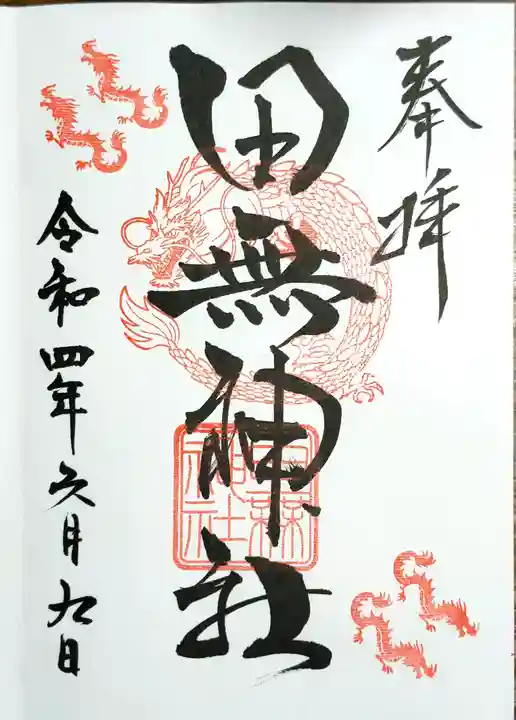 奉拝
田無神社
令和四年六月九日